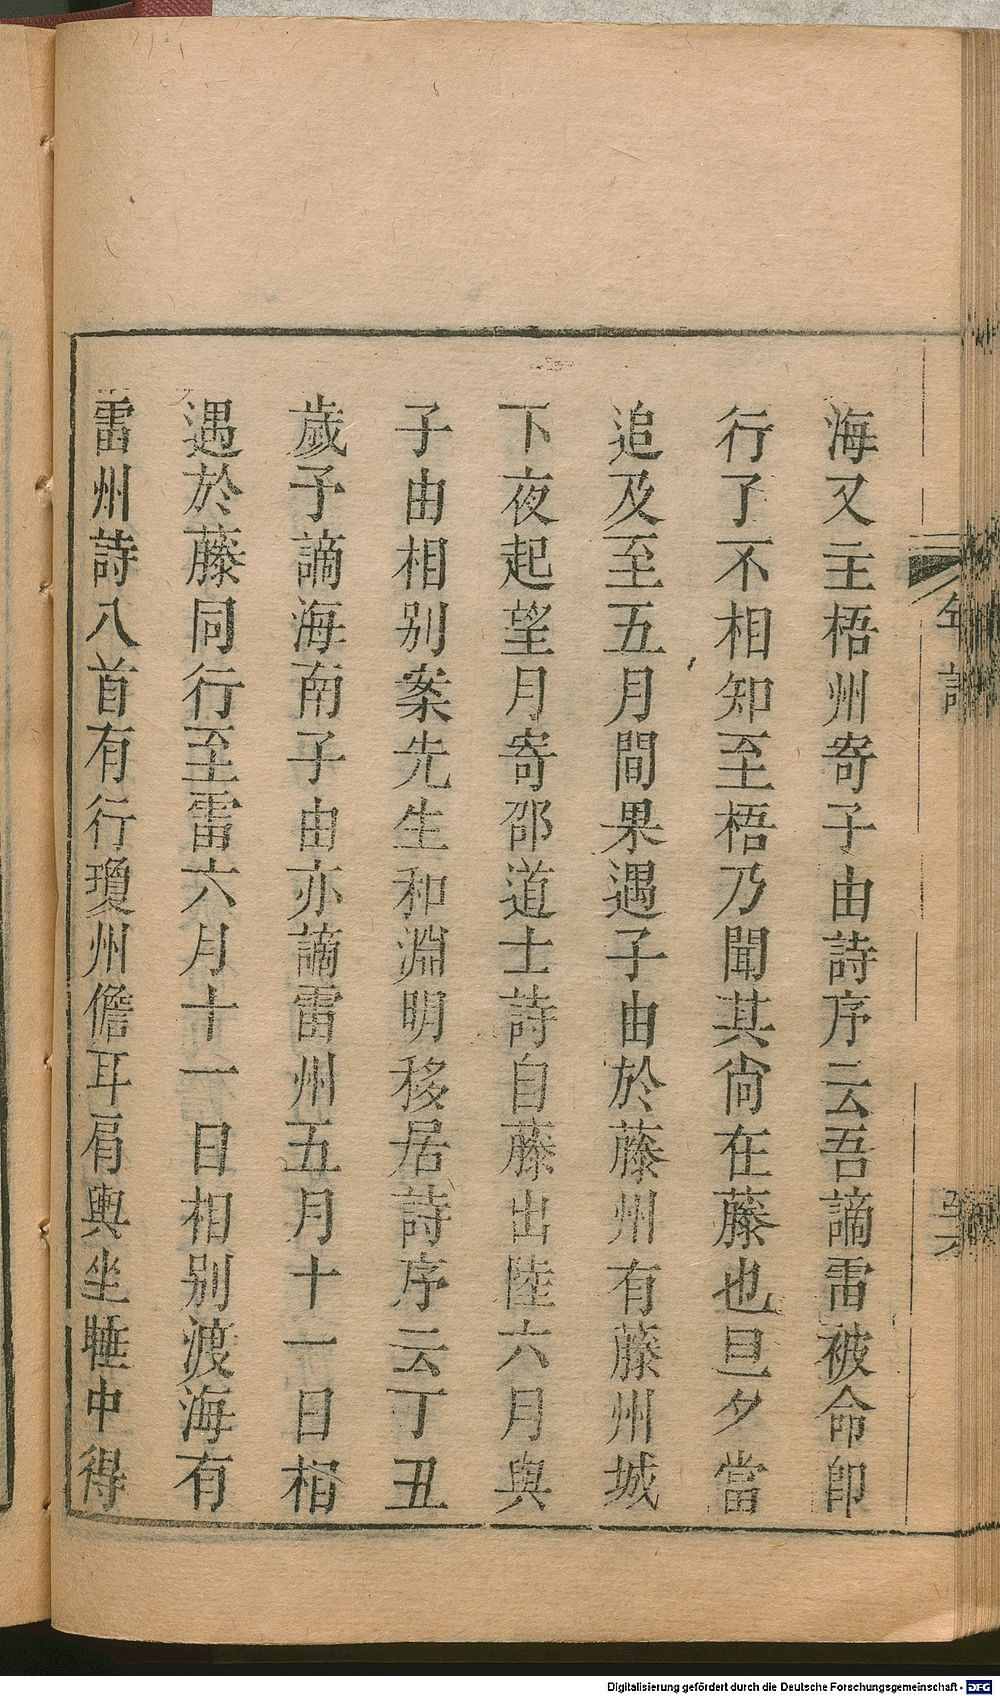 海又主梧州寄子由詩序云吾謫雷被命卽
行了不相知至梧乃聞其尙在藤也旦夕當
追及至五月間果遇子由於藤州有藤州城
下夜起望月寄邵道士詩自藤出陸六月與
子由相別案先生和淵明移居詩序云丁丑
歲予謫海南子由亦謫雷州五月十一日相
遇於藤同行至雷六月十一日相別渡海有
雷州詩八首有行瓊州儋耳肩輿坐睡中得
年譜
Digitalisierung gefördert durch die Deutsche Forschungsgemeinschaft - DFG